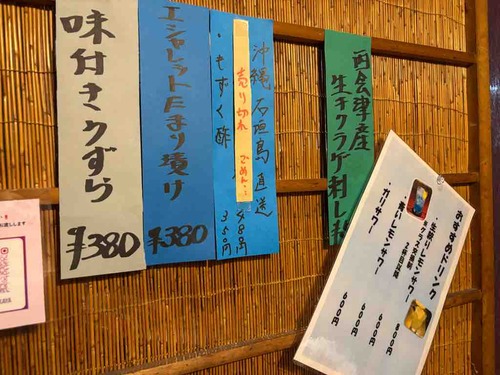 味付きうずら
¥380
エシャレットたまり漬け
¥380
沖縄 石垣島 直送
売り切れ
ごめん
・もずく酢
350円
西会津産
生キクラゲ刺し
おすすめドリンク
・生搾りレモンサワー
800円
600円
・青いレモンサワー
600円
・ガリサワー
600円